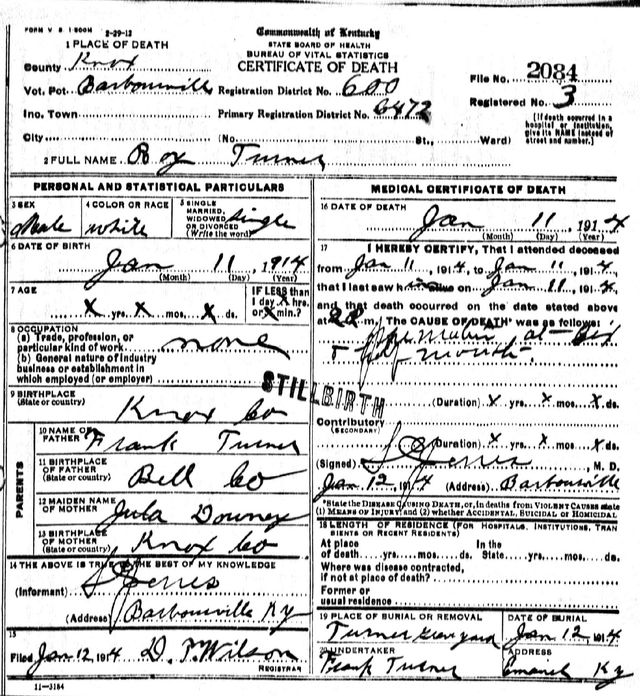 FORM V. S. 1 500M 2-29-12
Commonwealth of Kentucky
STATE BOARD OF HEALTH
BUREAU OF VITAL STATISTICS
CERTIFICATE OF DEATH
1 PLACE OF DEATH
County Knox
Vot. Pct. Barbourville Registration District No. 600
File No. 2084
Inc. Town Primary Registration District No. 6472
Registered No. 3
City (No. St., Ward)
[If death occurred in a hospital or institution, give its NAME instead of street and number.]
2 FULL NAME Roy Turner
PERSONAL AND STATISTICAL PARTICULARS
3 SEX Male
4 COLOR OR RACE white
5 SINGLE MARRIED, WIDOWED OR DIVORCED (Write the word) single
6 DATE OF BIRTH
Jan 11, 1914
(Month) (Day) (Year)
7 AGE
X yrs. X mos. X ds.
IF LESS than 1 day X hrs. or X min.?
8 OCCUPATION
(a) Trade, profession, or particular kind of work none
(b) General nature of industry business or establishment in which employed (or employer)
STILLBIRTH
9 BIRTHPLACE
(State or country) Knox Co
PARENTS
10 NAME OF FATHER Frank Turner
11 BIRTHPLACE OF FATHER
(State or country) Bell Co
12 MAIDEN NAME OF MOTHER Jula Downey
13 BIRTHPLACE OF MOTHER
(State or country) Knox Co
14 THE ABOVE IS TRUE TO THE BEST OF MY KNOWLEDGE
(Informant)
(Address) Barbourville Ky
15
Filed Jan 12 1914 D. Wilson
REGISTRAR
11-3184
MEDICAL CERTIFICATE OF DEATH
16 DATE OF DEATH
Jan 11, 1914
(Month) (Day) (Year)
17 I HEREBY CERTIFY, That I attended deceased
from Jan 11, 1914, to Jan 11, 1914,
that I last saw h alive on Jan 11, 1914,
and that death occurred on the date stated above
at m. The CAUSE OF DEATH* was as follows:
at six
month
(Duration) X yrs. X mos. X ds.
Contributory
(SECONDARY)
(Duration) X yrs. X mos. X ds.
(Signed) , M. D.
Jan 12, 1914 (Address) Barbourville
*State the DISEASE CAUSING DEATH, or, in deaths from VIOLENT CAUSES state
(1) MEANS OF INJURY; and (2) whether ACCIDENTAL, SUICIDAL or HOMICIDAL
18 LENGTH OF RESIDENCE (FOR HOSPITALS, INSTITUTIONS, TRANSIENTS OR RECENT RESIDENTS)
At place of death yrs. mos. ds.
In the State yrs. mos. ds.
Where was disease contracted, if not at place of death?
Former or usual residence
19 PLACE OF BURIAL OR REMOVAL
Turner Graveyard
DATE OF BURIAL
Jan 12 1914
20 UNDERTAKER
Frank Turner
ADDRESS
Ky